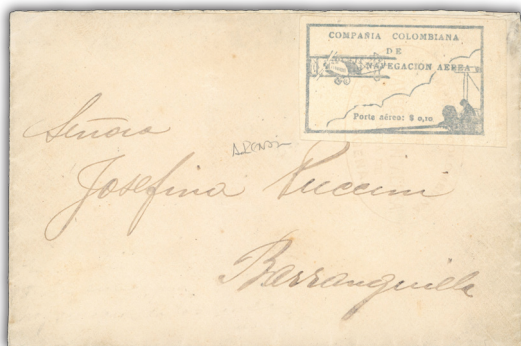 COMPAÑIA COLOMBIANA
DE
NAVEGACION AEREA
Porte aéreo: $ 0,10
Señora
Josefina Puccini
Barranquilla